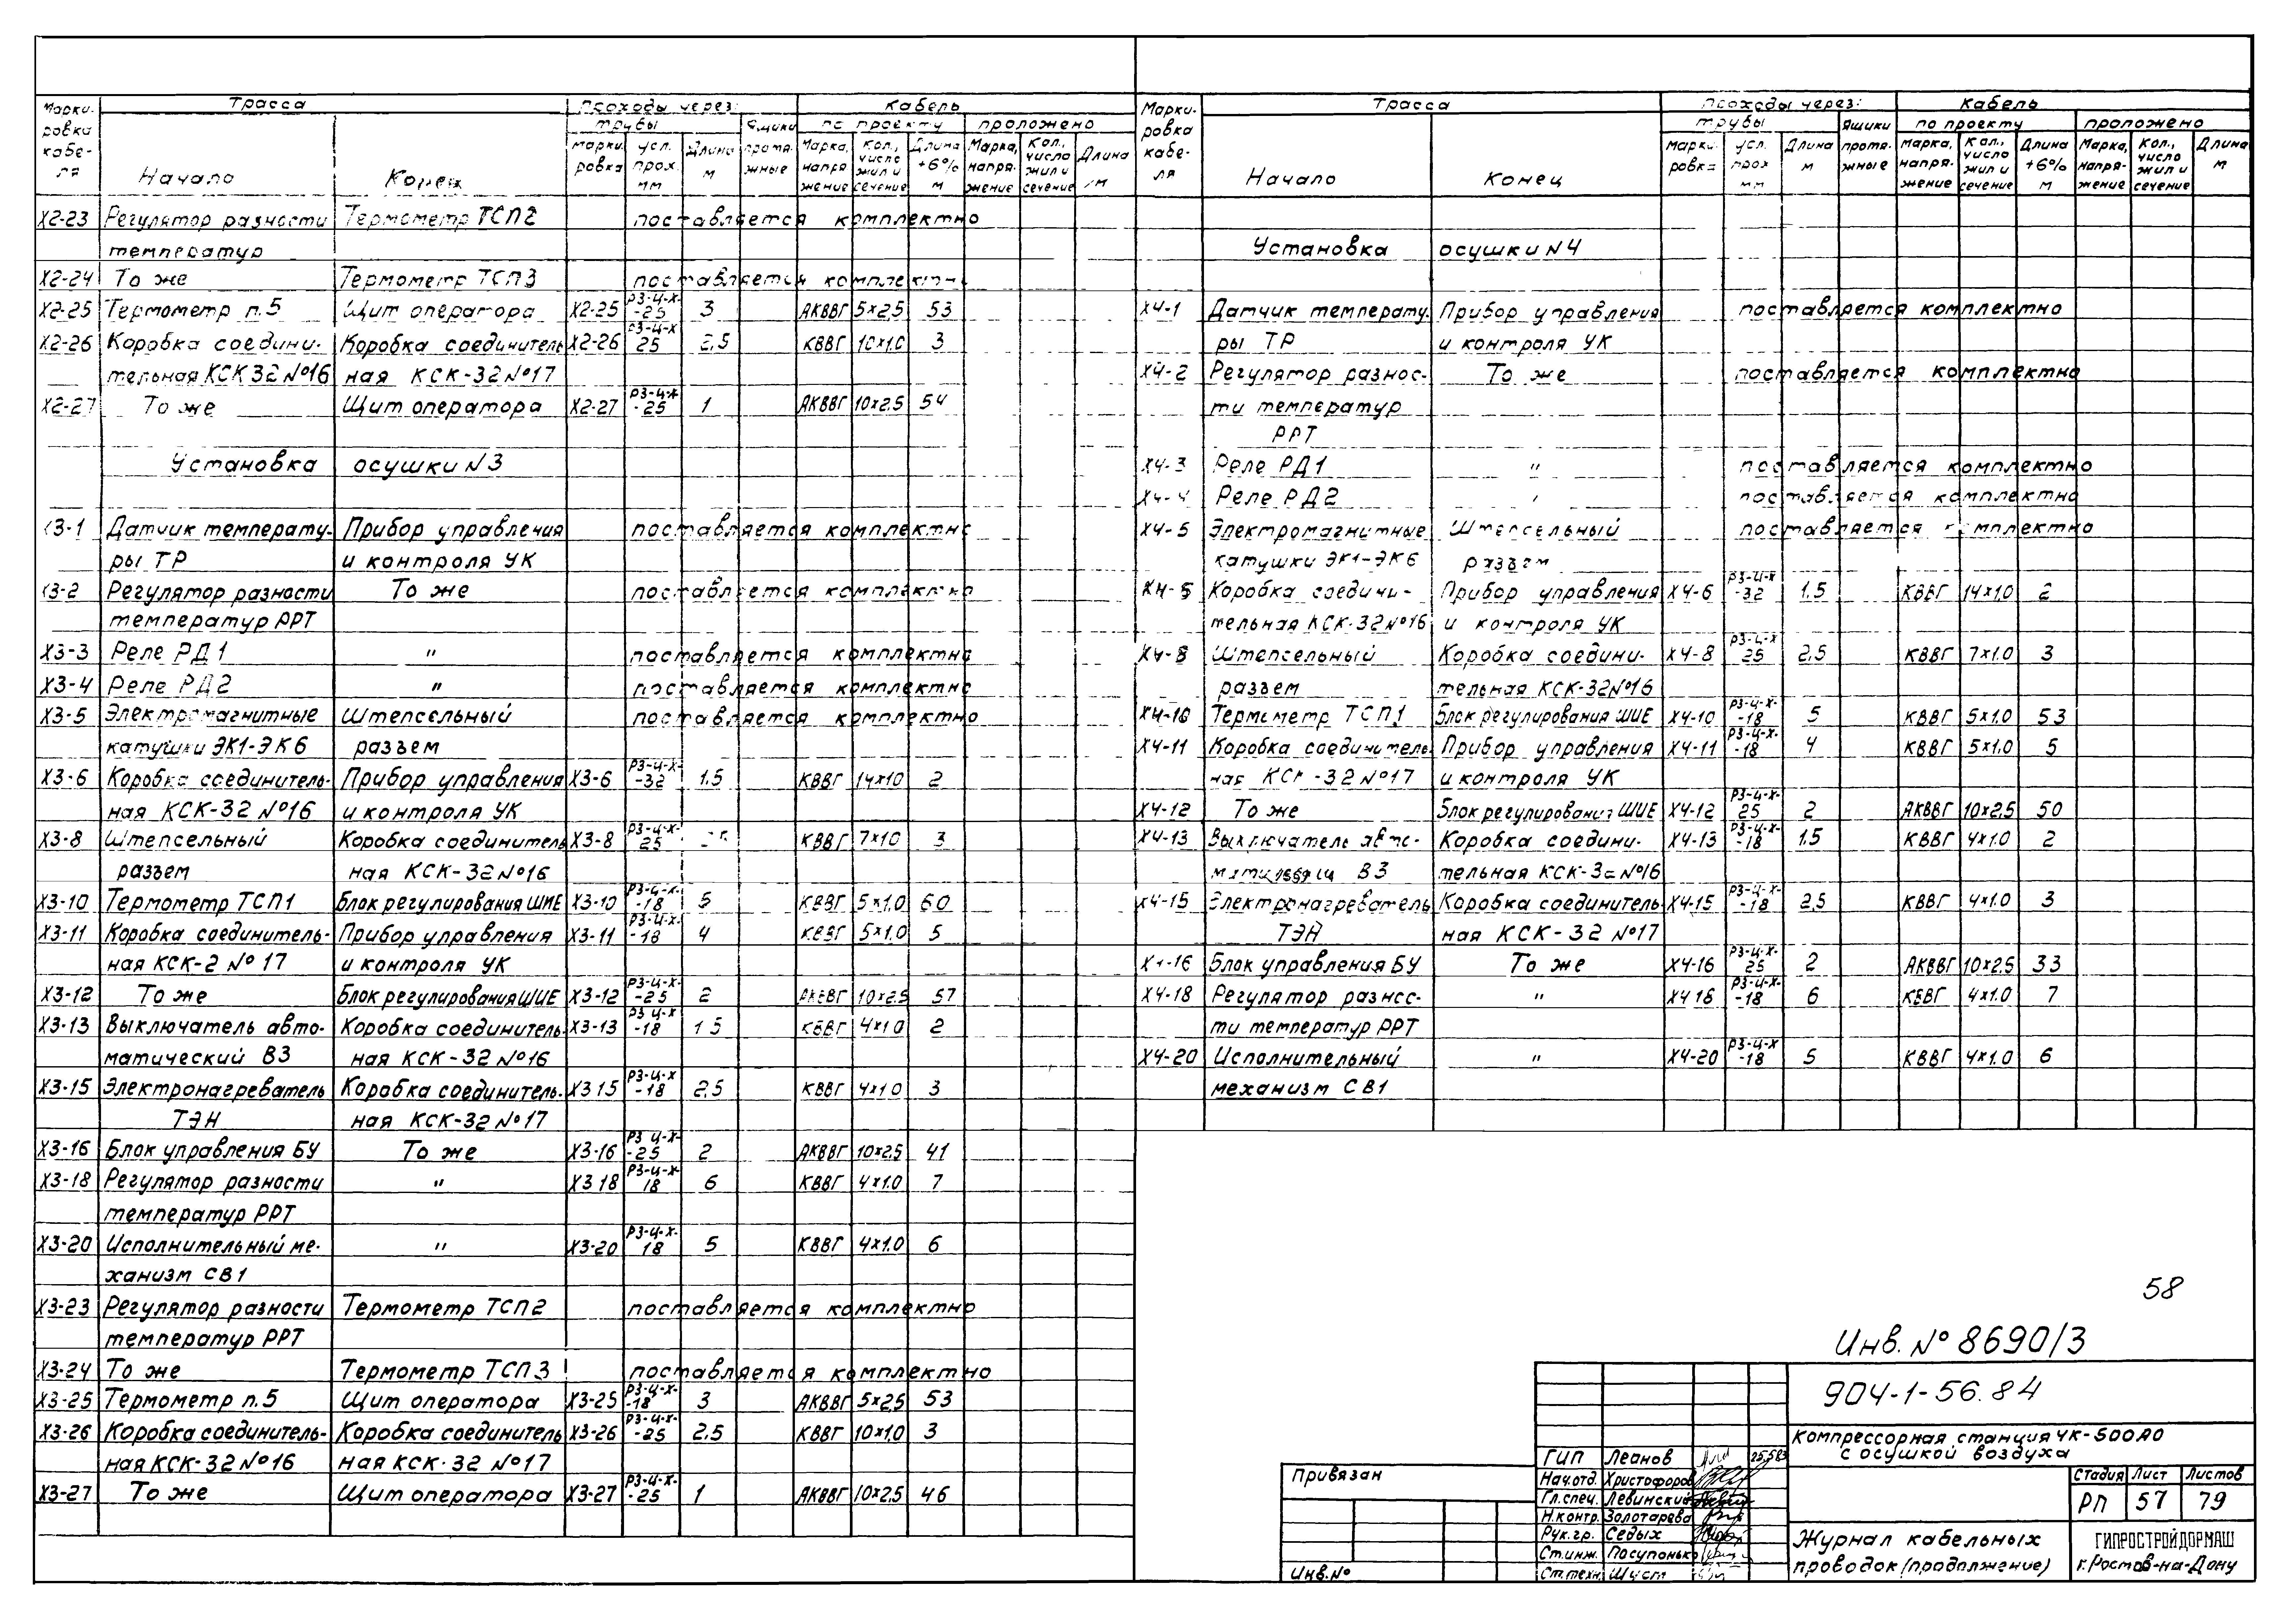 Маркировка кабеля | Трасса | Проходы через: | Кабель
трубы | Ящики протяжные | по проекту | проложено
Начало | Конец | маркировка | усл. прох. мм | Длина м | Марка, напряжение | Кол., число жил и сечение | Длина +6% м | Марка, напряжение | Кол., число жил и сечение | Длина м
Х2-23 Регулятор разности Термометр ТСП2 поставляется комплектно
температур
Х2-24 То же Термометр ТСП3 поставляется комплектно
Х2-25 Термометр п.5 Щит оператора Х2-25 РЗ-Ц-Х-25 3 АКВВГ 5х2,5 53
Х2-26 Коробка соедини- Коробка соединитель Х2-26 РЗ-Ц-Х 25 2,5 КВВГ 10х1.0 3
тельная КСК 32 №16 ная КСК-32 №17
Х2-27 То же Щит оператора Х2-27 РЗ-Ц-Х-25 1 АКВВГ 10х2,5 54
Установка осушки N3
Х3-1 Датчик температу- Прибор управления поставляется комплектно
ры ТР и контроля УК
Х3-2 Регулятор разности То же поставляется комплектно
температур РРТ
Х3-3 Реле РД1 " поставляется комплектно
Х3-4 Реле РД2 " поставляется комплектно
Х3-5 Электромагнитные Штепсельный поставляется комплектно
катушки ЭК1-ЭК6 разъем
Х3-6 Коробка соединитель- Прибор управления Х3-6 РЗ-Ц-Х-32 1.5 КВВГ 14х1.0 2
ная КСК-32 №16 и контроля УК
Х3-8 Штепсельный Коробка соединитель Х3-8 РЗ-Ц-Х-25 КВВГ 7х1.0 3
разъем ная КСК-32 №16
Х3-10 Термометр ТСП1 Блок регулирования ШИЕ Х3-10 РЗ-Ц-Х-18 5 КВВГ 5х1.0 60
Х3-11 Коробка соединитель- Прибор управления Х3-11 РЗ-Ц-Х-18 4 КВВГ 5х1.0 5
ная КСК-2 №17 и контроля УК
Х3-12 То же Блок регулирования ШИЕ Х3-12 РЗ-Ц-Х-25 2 АКВВГ 10х2,5 57
Х3-13 Выключатель авто- Коробка соединитель- Х3-13 РЗ Ц-Х-18 1 5 КВВГ 4х1.0 2
матический В3 ная КСК-32 №16
Х3-15 Электронагреватель Коробка соединитель- Х3 15 РЗ-Ц-Х-18 2,5 КВВГ 4х1.0 3
ТЭН ная КСК-32 №17
Х3-16 Блок управления БУ То же Х3-16 РЗ Ц-Х-25 2 АКВВГ 10х2,5 41
Х3-18 Регулятор разности " Х3 18 РЗ-Ц-Х 18 6 КВВГ 4х1.0 7
температур РРТ
Х3-20 Исполнительный ме- " Х3-20 РЗ-Ц-Х-18 5 КВВГ 4х1.0 6
ханизм СВ1
Х3-23 Регулятор разности Термометр ТСП2 поставляется комплектно
температур РРТ
Х3-24 То же Термометр ТСП3 поставляется комплектно
Х3-25 Термометр п.5 Щит оператора Х3-25 РЗ-Ц-Х-18 3 АКВВГ 5х2,5 53
Х3-26 Коробка соединитель- Коробка соединитель Х3-26 РЗ-Ц-Х-25 2,5 КВВГ 10х1.0 3
ная КСК-32 №16 ная КСК-32 №17
Х3-27 То же Щит оператора Х3-27 РЗ-Ц-Х-25 1 АКВВГ 10х2,5 46
Маркировка кабеля | Трасса | Проходы через: | Кабель
трубы | Ящики протяжные | по проекту | проложено
Начало | Конец | маркировка | усл. прох мм | Длина м | Марка, напряжение | Кол., число жил и сечение | Длина +6% м | Марка, напряжение | Кол., число жил и сечение | Длина м
Установка осушки N4
Х4-1 Датчик температу- Прибор управления поставляется комплектно
ры ТР и контроля УК
Х4-2 Регулятор разнос- То же поставляется комплектно
ти температур
РРТ
Х4-3 Реле РД1 " поставляется комплектно
Х4-4 Реле РД2 " поставляется комплектно
Х4-5 Электромагнитные Штепсельный поставляется комплектно
катушки ЭК1-ЭК6 разъем
Х4-6 Коробка соедини- Прибор управления Х4-6 РЗ-Ц-Х-32 1,5 КВВГ 14х1.0 2
тельная КСК-32 №16 и контроля УК
Х4-8 Штепсельный Коробка соедини- Х4-8 РЗ-Ц-Х 25 2,5 КВВГ 7х1.0 3
разъем тельная КСК-32 №16
Х4-10 Термометр ТСП1 Блок регулирования ШИЕ Х4-10 РЗ-Ц-Х-18 5 КВВГ 5х1.0 53
Х4-11 Коробка соединитель Прибор управления Х4-11 РЗ-Ц-Х-18 4 КВВГ 5х1.0 5
ная КСК-32 №17 и контроля УК
Х4-12 То же Блок регулирования ШИЕ Х4-12 РЗ-Ц-Х-25 2 АКВВГ 10х2,5 50
Х4-13 Выключатель авто- Коробка соедини- Х4-13 РЗ-Ц-Х-18 1,5 КВВГ 4х1.0 2
В3 тельная КСК-32 №16
Х4-15 Электронагреватель Коробка соединитель- Х4-15 РЗ-Ц-Х-18 2,5 КВВГ 4х1.0 3
ТЭН ная КСК-32 №17
Х4-16 Блок управления БУ То же Х4-16 РЗ-Ц-Х-25 2 АКВВГ 10х2,5 33
Х4-18 Регулятор разнос- " Х4 18 РЗ-Ц-Х-18 6 КВВГ 4х1.0 7
ти температур РРТ
Х4-20 Исполнительный " Х4-20 РЗ-Ц-Х-18 5 КВВГ 4х1.0 6
механизм СВ1
58
Инв. № 8690/3
904-1-56.84
Компрессорная станция 4К-500А0
с осушкой воздуха
ГИП Леанов
Нач.отд. Христофоров
Гл.спец. Левинский
Н.контр. Золотарева
Рук.гр. Седых
Ст.инж. Посупонько
Ст.техн. Шуст
Привязан
Инв.№
Стадия Лист Листов
РП 57 79
Журнал кабельных
проводок (продолжение)
ГИПРОСТРОЙДОРМАШ
г.Ростов-на-Дону